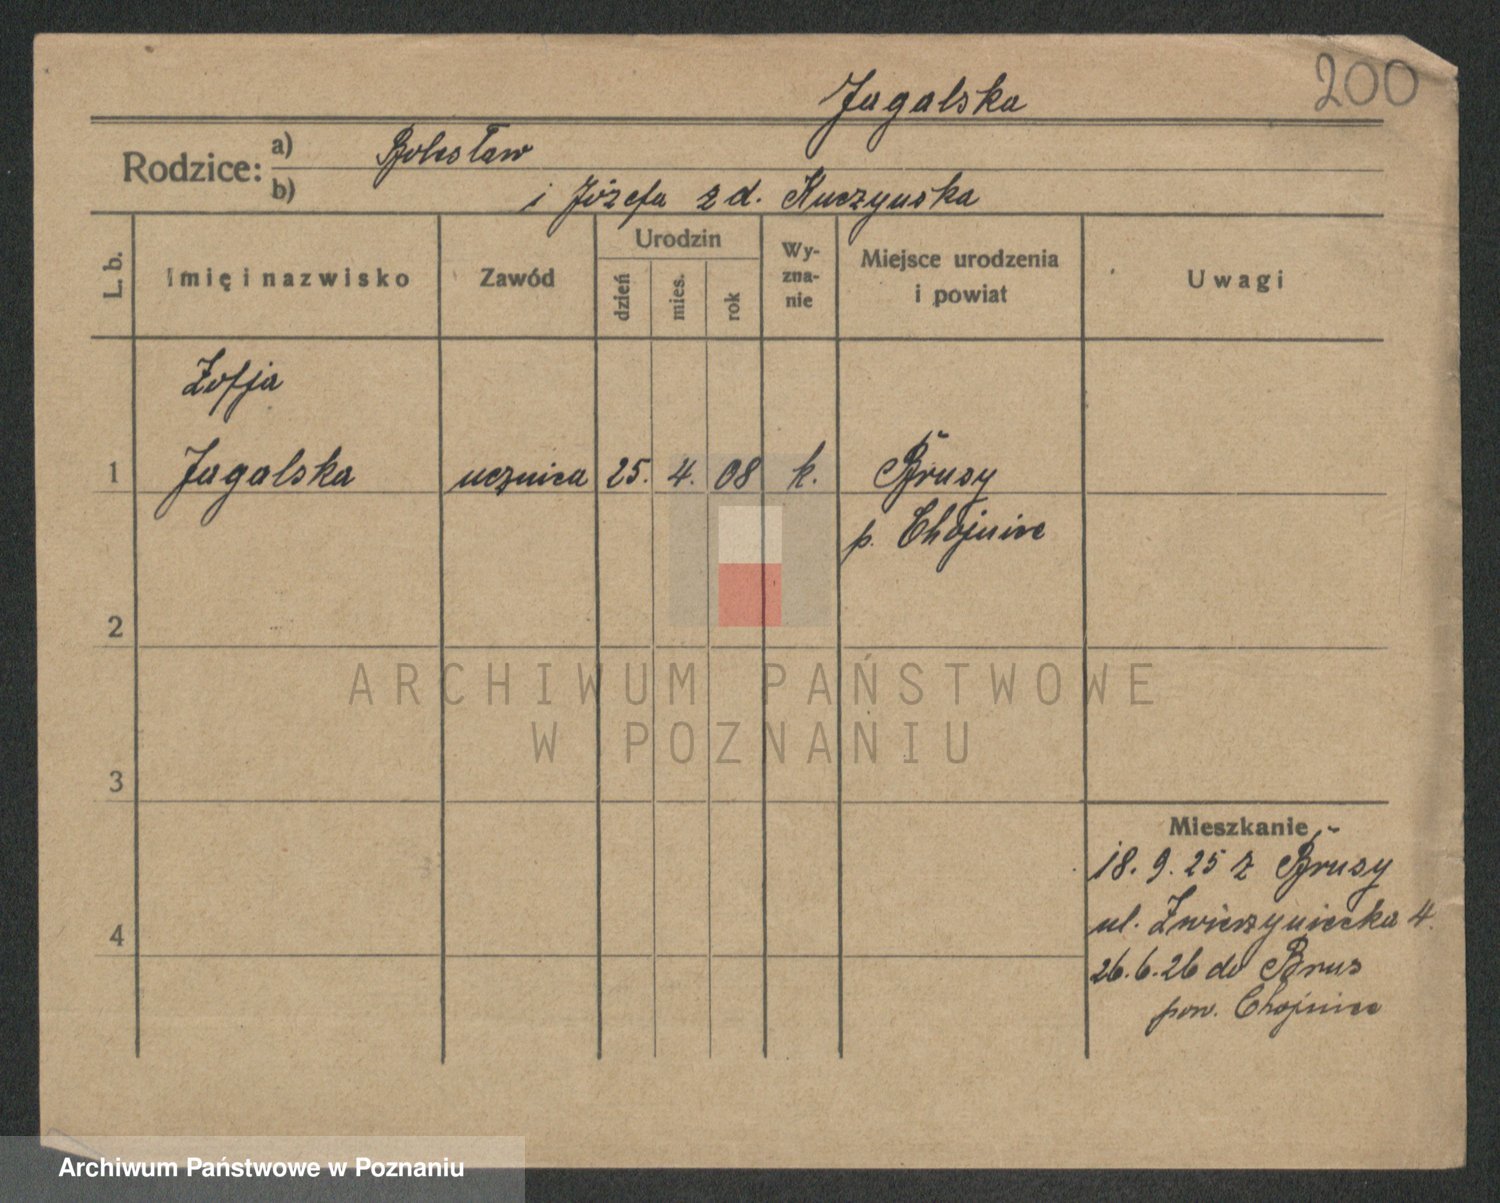 200
Jagalska
Rodzice: a) Bolesław
b) i Józefa z d. Kuczynska
L. b.
Imię i nazwisko
Zawód
Urodzin
dzień
mies.
rok
Wy-
zna-
nie
Miejsce urodzenia
i powiat
Uwagi
Zofja
1 Jagalska ucznica 25. 4. 08 k. Brusy
p. Chojnice
2
3
4
Mieszkanie
18. 9. 25 z Brusy
ul. Zwierzyniecka 4.
26. 6. 26 do Brus
pow. Chojnice
ARCHIWUM PAŃSTWOWE
W POZNANIU
Archiwum Państwowe w Poznaniu